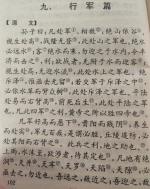 九、行军篇
【原文】
孙子曰：凡处军、相敌：绝山依谷，
视生处高，战隆无登，此处山之军也。绝水
必远水；客绝水而来，勿迎之于水内，令半
济而击之，利；欲战者，无附于水而迎客；
视生处高，无迎水流，此处水上之军也。绝
斥泽，惟亟去无留；若交军于斥泽之中，
必依水草而背众树，此处斥泽之军也。平陆
处易而右背高，前死后生，此处平陆之军
也。凡此四军之利，黄帝之所以胜四帝也。
凡军好高而恶下，贵阳而贱阴，养生
而处实，军无百疾，是谓必胜。丘陵堤防，必
处其阳而右背之。此兵之利，地之助也。
上雨，水沫至，欲涉者，待其定也。凡地有绝
涧、天井、天牢、天罗、天陷、天隙，必亟
去之，勿近也。吾远之，敌近之；吾迎之，敌
102